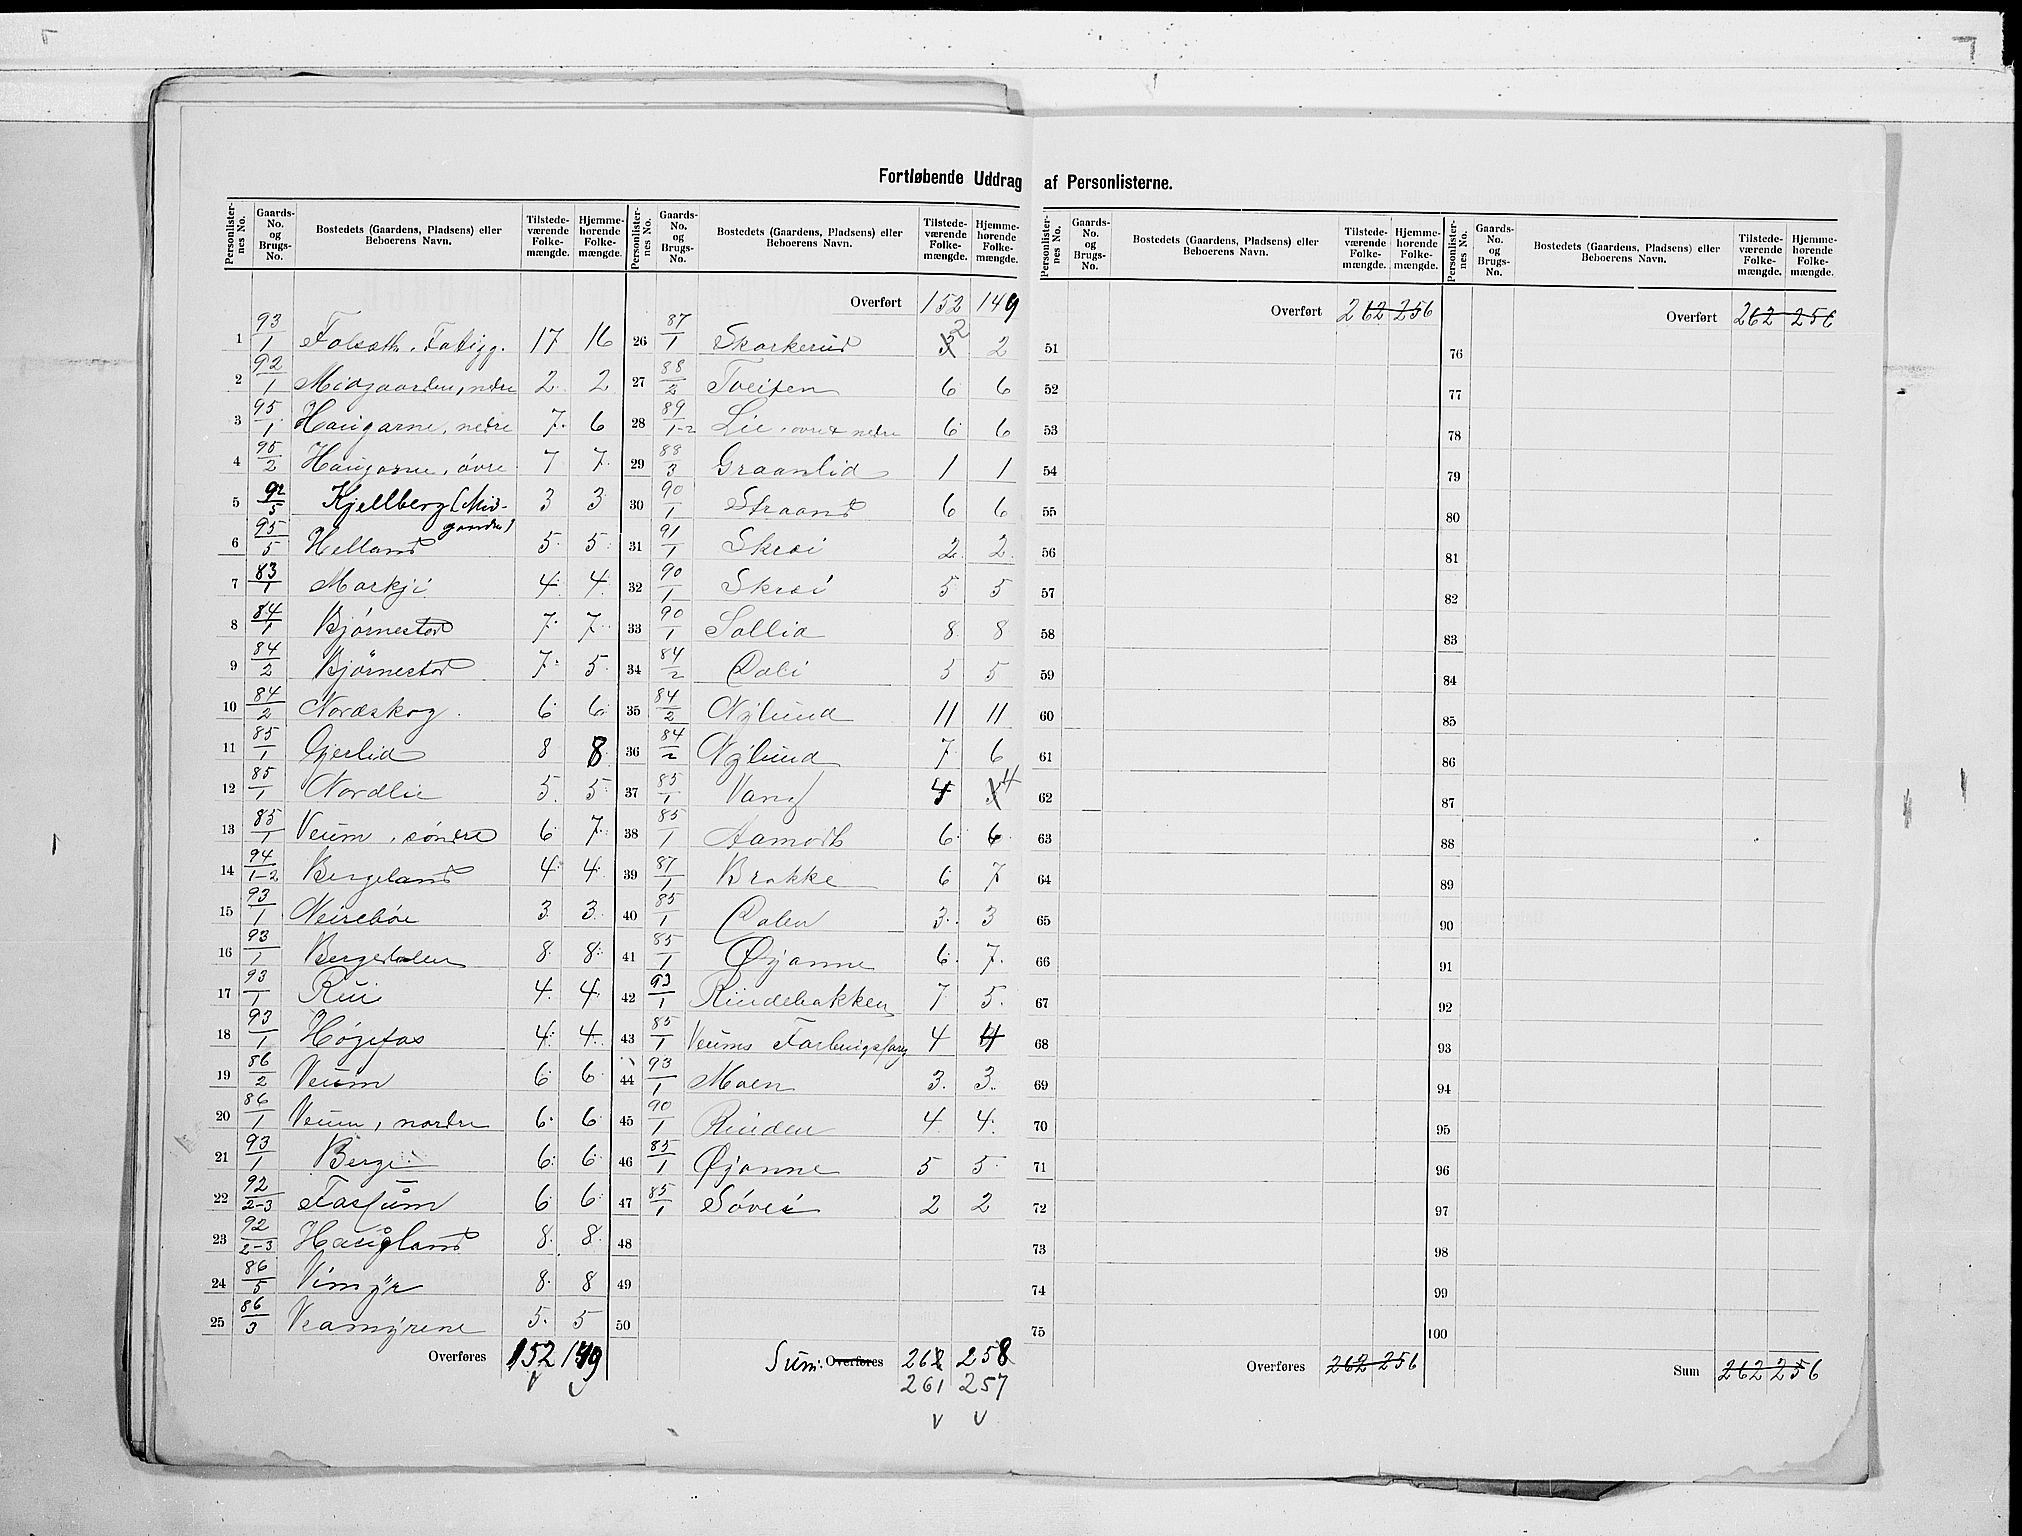 Fortløbende Uddrag af Personlisterne.
Personlister-nes No. | Gaards-No. og Brugs-No. | Bostedets (Gaardens, Pladsens) eller Beboerens Navn. | Tilstede-værende Folke-mængde. | Hjemme-hørende Folke-mængde.
1 93/1 17 16
2 92/1 Midgaarden, nedre 2 2
3 95/1 Haugarne, nedre 7 6
4 95/2 Haugarne, øvre 7 7
5 92/5 Kjellberg (Mid-garden) 3 3
6 95/5 Helland 5 5
7 83/1 Markji 4 4
8 84/1 Bjørnestad 7 7
9 84/2 Bjørnestad 7 5
10 84/2 Nordskog 6 6
11 85/1 Gjerlid 8 8
12 85/1 Nordlie 5 5
13 85/1 Veum, søndre 6 7
14 94/1-2 Bergeland 4 4
15 93/1 Neirebøe 3 3
16 93/1 Bergedalen 8 8
17 93/1 Rui 4 4
18 93/1 Høgefos 4 4
19 86/2 Veum 6 6
20 86/1 Veum, nordre 6 6
21 93/1 Berge 6 6
22 92/2-3 6 6
23 92/2-3 Haugland 8 8
24 86/5 Vimyr 8 8
25 86/3 Veamyrene 5 5
Overføres 152 149
Personlister-nes No. | Gaards-No. og Brugs-No. | Bostedets (Gaardens, Pladsens) eller Beboerens Navn. | Tilstede-værende Folke-mængde. | Hjemme-hørende Folke-mængde.
Overført 152 149
26 87/1 Skarkerud 2 2
27 88/2 Tveiten 6 6
28 89/1-2 Lie, øvre & nedre 6 6
29 88/3 Graanlid 1 1
30 90/1 Straand 6 6
31 91/1 Skrei 2 2
32 90/1 Skrei 5 5
33 90/1 Sollid 8 8
34 84/2 Dali 5 5
35 84/2 Nylund 11 11
36 84/2 Nylund 7 6
37 85/1 Vang 4 4
38 85/1 Aamodt 6 6
39 87/1 Brakke 6 7
40 85/1 Dalen 3 3
41 85/1 Øyanne 6 7
42 93/1 Rindebakken 7 5
43 85/1 Veums 4 4
44 93/1 Moen 3 3
45 90/1 Rinden 4 4
46 85/1 Øyanne 5 5
47 85/1 Søvei 2 2
48
49
50
Sum: Overføres 262 258
261 257
Personlister-nes No. | Gaards-No. og Brugs-No. | Bostedets (Gaardens, Pladsens) eller Beboerens Navn. | Tilstede-værende Folke-mængde. | Hjemme-hørende Folke-mængde.
Overført 262 256
51
52
53
54
55
56
57
58
59
60
61
62
63
64
65
66
67
68
69
70
71
72
73
74
75
Overføres 262 256
Personlister-nes No. | Gaards-No. og Brugs-No. | Bostedets (Gaardens, Pladsens) eller Beboerens Navn. | Tilstede-værende Folke-mængde. | Hjemme-hørende Folke-mængde.
Overført 262 256
76
77
78
79
80
81
82
83
84
85
86
87
88
89
90
91
92
93
94
95
96
97
98
99
100
Sum 262 256